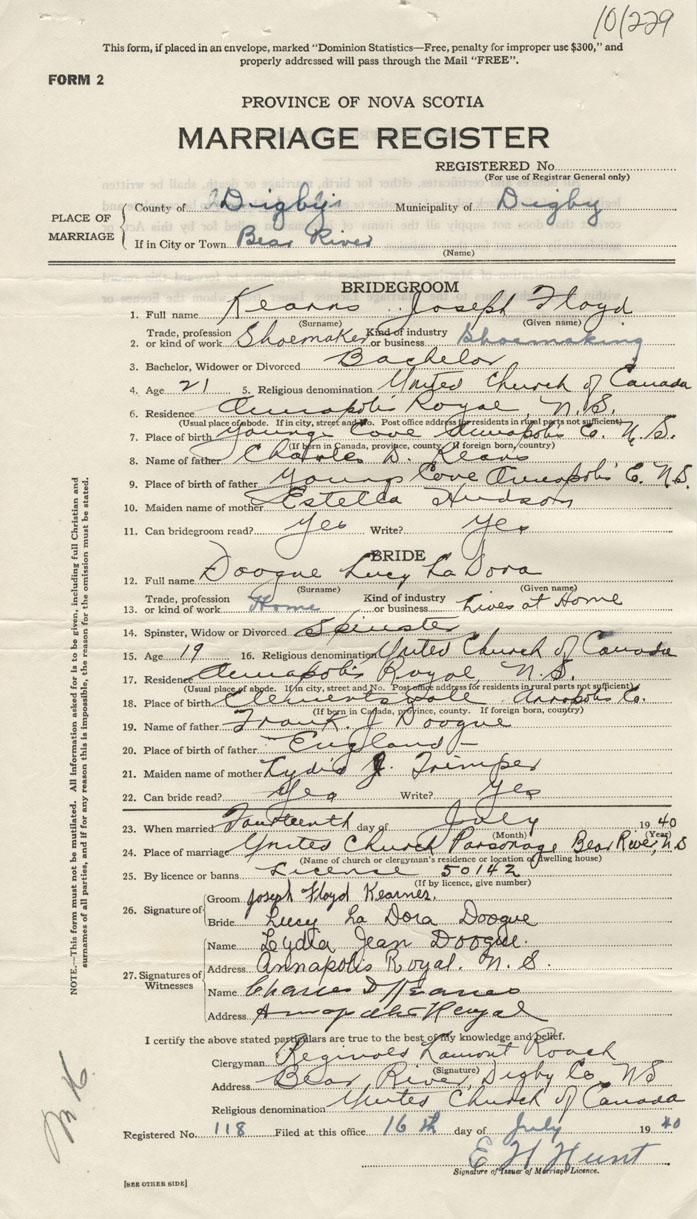 10/229
This form, if placed in an envelope, marked "Dominion Statistics—Free, penalty for improper use $300," and
properly addressed will pass through the Mail "FREE".
FORM 2
PROVINCE OF NOVA SCOTIA
MARRIAGE REGISTER
REGISTERED No.
(For use of Registrar General only)
PLACE OF MARRIAGE
County of Digby Municipality of Digby
If in City or Town Bear River
(Name)
BRIDEGROOM
1. Full name Kearns Joseph Floyd
(Surname) (Given name)
2. Trade, profession or kind of work Shoemaker Kind of industry or business Shoemaking
3. Bachelor, Widower or Divorced Bachelor
4. Age 21 5. Religious denomination United Church of Canada
6. Residence Annapolis Royal, N.S.
(Usual place of abode. If in city, street and No. Post office address for residents in rural parts not sufficient)
7. Place of birth Youngs Cove Annapolis Co. N.S.
(If born in Canada, province, county. If foreign born, country)
8. Name of father Charles D. Kearns
9. Place of birth of father Youngs Cove Annapolis Co. N.S.
10. Maiden name of mother Estella Hudson
11. Can bridegroom read? Yes Write? Yes
BRIDE
12. Full name Doogue Lucy La Dora
(Surname) (Given name)
13. Trade, profession or kind of work Home Kind of industry or business Lives at Home
14. Spinster, Widow or Divorced Spinster
15. Age 19 16. Religious denomination United Church of Canada
17. Residence Annapolis Royal, N.S.
(Usual place of abode. If in city, street and No. Post office address for residents in rural parts not sufficient)
18. Place of birth Clementsvale Annapolis Co.
(If born in Canada, province, county. If foreign born, country)
19. Name of father Frank J. Doogue
20. Place of birth of father England
21. Maiden name of mother Lydia J. Trimper
22. Can bride read? Yes Write? Yes
23. When married Fourteenth day of July 1940
(Month) (Year)
24. Place of marriage United Church Parsonage Bear River, N.S
(Name of church or clergyman's residence or location of dwelling house)
25. By licence or banns License 50142
(If by licence, give number)
26. Signature of Groom Joseph Floyd Kearns
Bride Lucy La Dora Doogue
27. Signatures of Witnesses
Name Lydia Jean Doogue.
Address Annapolis Royal. N. S.
Name Charles D Kearns
Address Annapolis Royal
I certify the above stated particulars are true to the best of my knowledge and belief.
Clergyman Reginald Lamont Roach
(Signature)
Address Bear River, Digby Co NS
Religious denomination United Church of Canada
Registered No. 118 Filed at this office 16th day of July 1940
E H Hunt
Signature of Issuer of Marriage Licence.
[SEE OTHER SIDE]
NOTE.—This form must not be mutilated. All information asked for is to be given, including full Christian and
surnames of all parties, and if for any reason this is impossible, the reason for the omission must be stated.